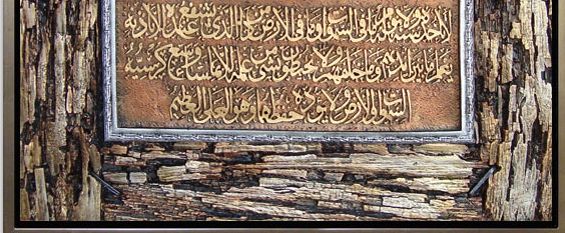 لا تأخذه سنة ولا نوم له ما في السموات وما في الارض من ذا الذي يشفع عنده الا باذنه
يعلم ما بين ايديهم وما خلفهم ولا يحيطون بشئ من علمه الا بما شاء وسع كرسيه
السموات والارض ولا يؤده حفظهما وهو العلي العظيم